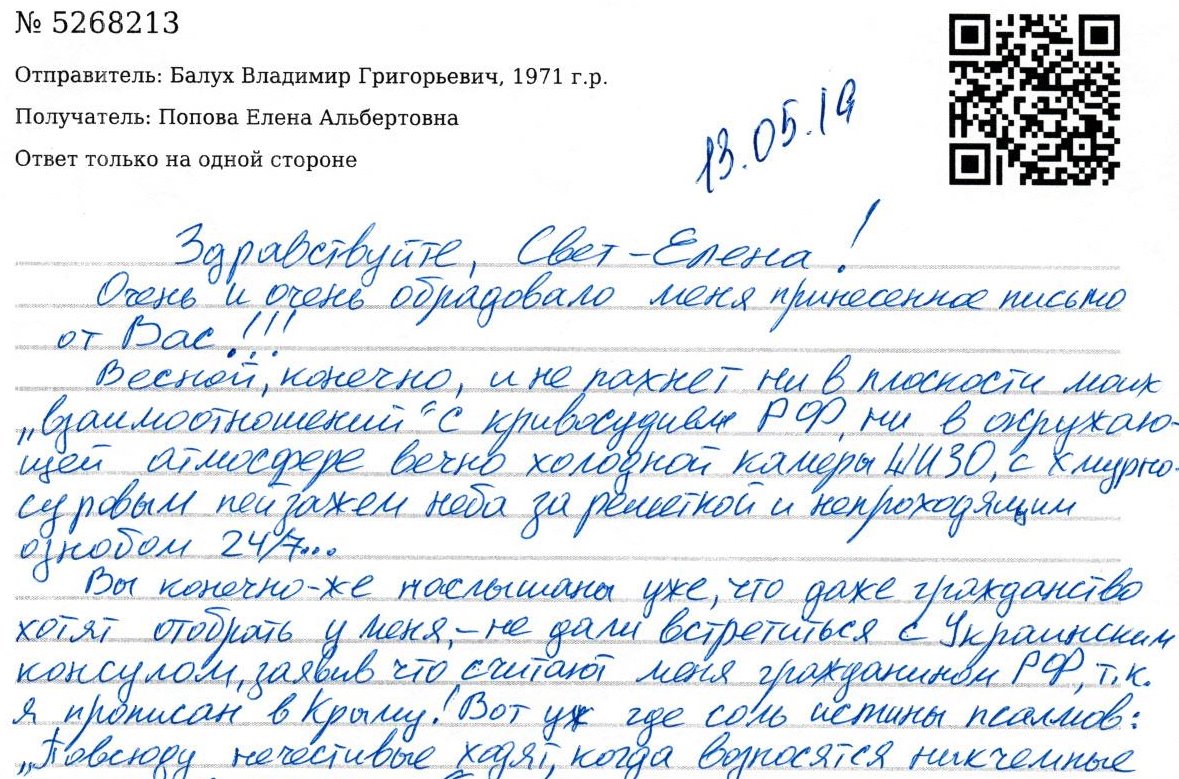 № 5268213
Отправитель: Балух Владимир Григорьевич, 1971 г.р.
Получатель: Попова Елена Альбертовна
Ответ только на одной стороне
13.05.19
Здравствуйте, Свет-Елена!
Очень и очень обрадовало меня принесенное письмо
от Вас!!!
Весной, конечно, и не пахнет ни в плоскости моих
„взаимоотношений“ с кривосудием РФ, ни в окружаю-
щей атмосфере вечно холодной камеры ШИЗО, с хмурно-
суровым пейзажем неба за решеткой и непроходящим
ознобом 24/7...
Вы конечно-же наслышаны уже, что даже гражданство
хотят отобрать у меня, – не дали встретиться с Украинским
консулом, заявив что, считают меня гражданином РФ, т.к.
я прописан в Крыму! Вот уж где соль истины псалмов:
„Повсюду нечестивые ходят, когда возносятся никчемные